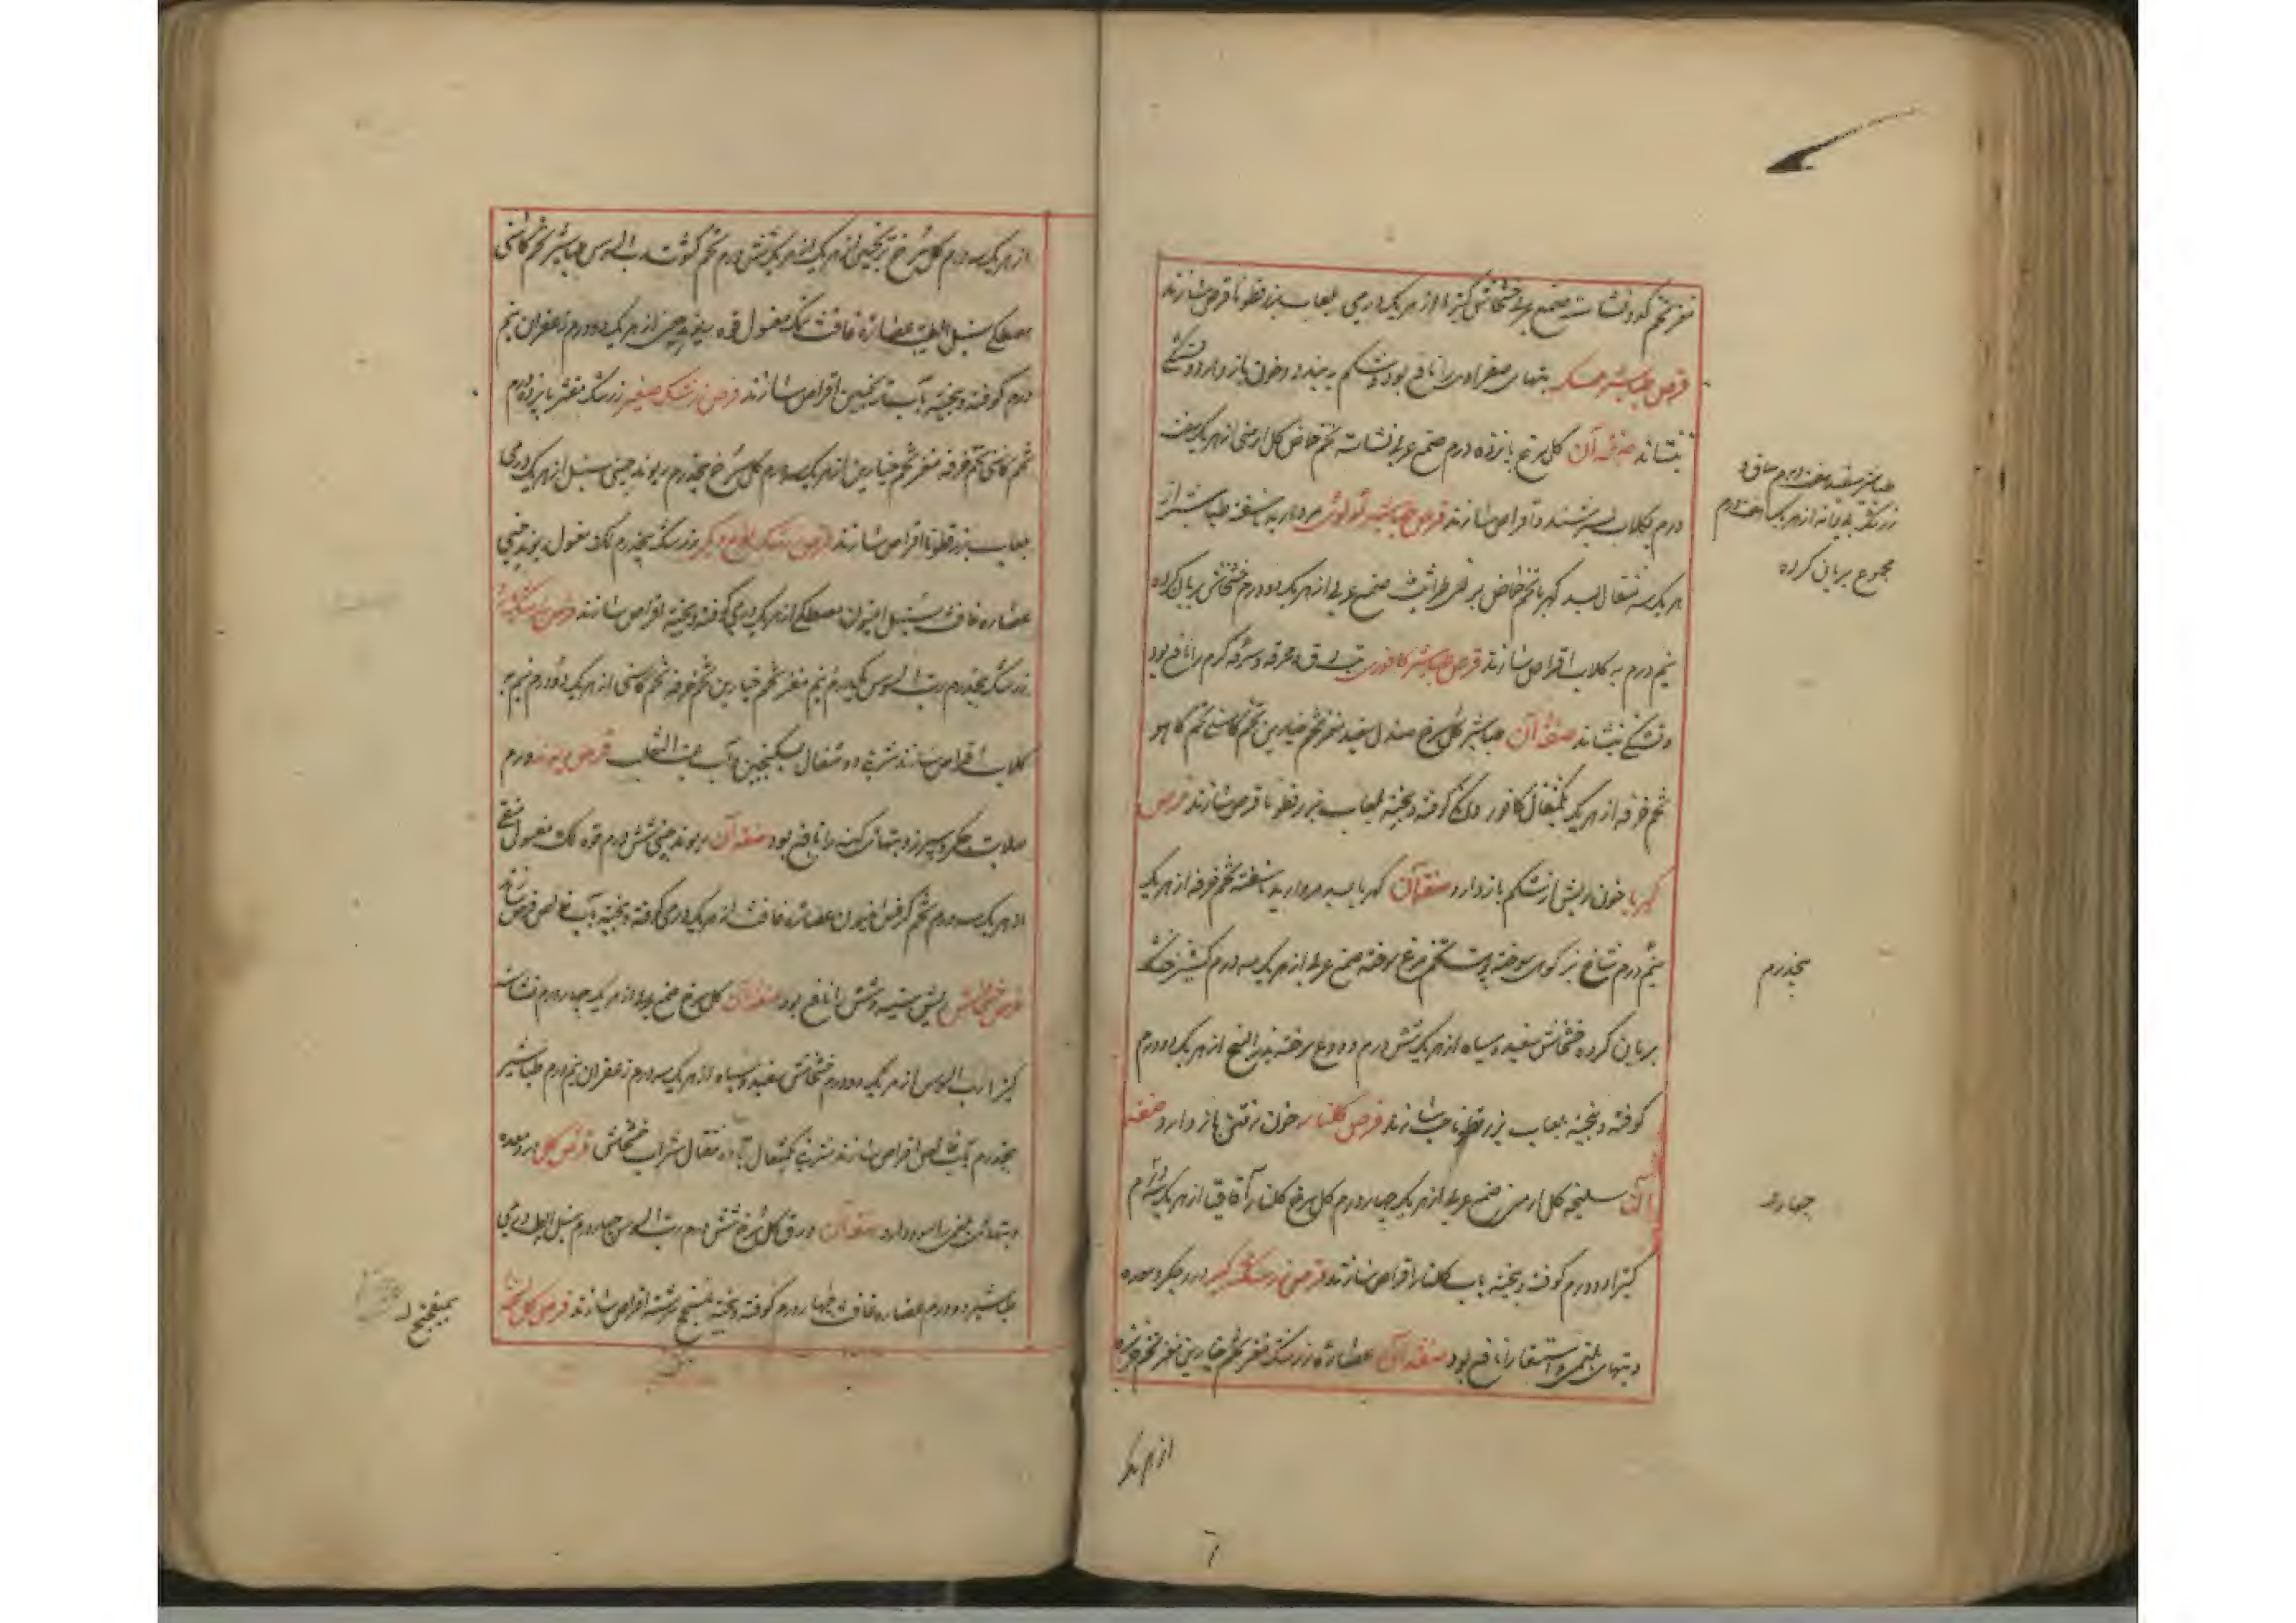 مغز تخم کدو نشاسته صمغ عربی خشخاش کتیرا از هریک درمی بلعاب بزرقطونا قرص سازند
قرص طباشیر ممسک تبهای صفراوی را نافع بود و شکم ببندد و خون باز دارد و تشنگی
بنشاند صفة آن گل سرخ پانزده درم صمغ عربی نشاسته تخم حماض گل ارمنی از هریک
درم بگلاب بسرشند و اقراص سازند قرص طباشیر لولوی مروارید ناسفته طباشیر از
هریک سه مثقال بسد کهربا تخم حماض صمغ عربی از هریک دو درم خشخاش بریان کرده
نیم درم به گلاب اقراص سازند قرص طباشیر کافوری تب دق و محرقه و سرفه گرم را نافع بود
و تشنگی بنشاند صفة آن طباشیر گل سرخ صندل سفید مغز تخم خیارین تخم کاسنی تخم کاهو
تخم خرفه از هریک یکمثقال کافور دانگی کوفته و بیخته بلعاب بزرقطونا قرص سازند قرص
کهربا خون ریش از شکم باز دارد صفة آن کهربا بسد مروارید ناسفته تخم خرفه از هریک
پنج درم شاخ بز کوهی سوخته پوست تخم مرغ سوخته صمغ عربی از هریک سه درم کشنیز خشک
بریان کرده خشخاش سفید و سیاه از هریک شش درم ودع سوخته بذر البنج از هریک دو درم
کوفته و بیخته بلعاب بزرقطونا حب سازند قرص گلنار خون رفتن باز دارد صفة
آن سلیخه گل ارمنی صمغ عربی از هریک چهار درم گل سرخ گلنار آقاقیا از هریک سه درم
کتیرا دو درم کوفته و بیخته بآب گلنار اقراص سازند قرص زرشک کبیر درد جگر و معده
و تبهای بلغمی و استسقا را نافع بود صفة آن عصاره زرشک مغز تخم خیارین مغز تخم خربزه
از هریک
طباشیر سفید هفت درم سماق
زرشک از هریک هفت درم
مجموع بریان کرده
پنجدرم
چهار
از هریک سه درم گل سرخ ترنجبین از هریک شش درم تخم کشوث رب السوس طباشیر تخم کاسنی
مصطکی سنبل الطیب عصاره غافث لک مغسول فوه ریوند چینی از هریک دو درم زعفران نیم
درم کوفته و بیخته بآب ترنجبین اقراص سازند قرص زرشک صغیر زرشک منقی پانزده درم
تخم کاسنی تخم خرفه مغز تخم خیارین از هریک سه درم گل سرخ پنجدرم ریوند چینی سنبل از هریک درمی
بلعاب بزرقطونا اقراص سازند قرص زرشک نوع دیگر زرشک پنجدرم لک مغسول ریوند چینی
عصاره غافث سنبل افیون مصطکی از هریک درمی کوفته و بیخته اقراص سازند قرص زرشک
زرشک پنجدرم رب السوس یکدرم و نیم مغز تخم خیارین تخم خرفه تخم کاسنی از هریک دو درم
گلاب اقراص سازند شربة دو مثقال بسکنجبین و آب عنب الثعلب قرص ریوند ورم
صلابت جگر و سپرز و تبهای کهنه را نافع بود صفة آن ریوند چینی شش درم فوه لک مغسول
از هریک سه درم تخم کرفس افیون عصاره غافث از هریک درمی کوفته و بیخته بآب خالص قرص سازند
قرص خشخاش ریش سینه و شش را نافع بود صفة آن گل سرخ صمغ عربی از هریک چهار درم نشاسته
کتیرا رب السوس از هریک دو درم خشخاش سفید و سیاه از هریک سه درم زعفران نیم درم طباشیر
پنجدرم بآب خالص اقراص سازند شربة یکمثقال با ده مثقال شراب خشخاش قرص گل درد معده
و تبهای بلغمی را سود دارد صفة آن ورق گل سرخ شش درم رب السوس چهار درم سنبل الطیب درمی
طباشیر دو درم عصاره غافث چهار درم کوفته و بیخته سرشته اقراص سازند قرص گل
بمیفختج